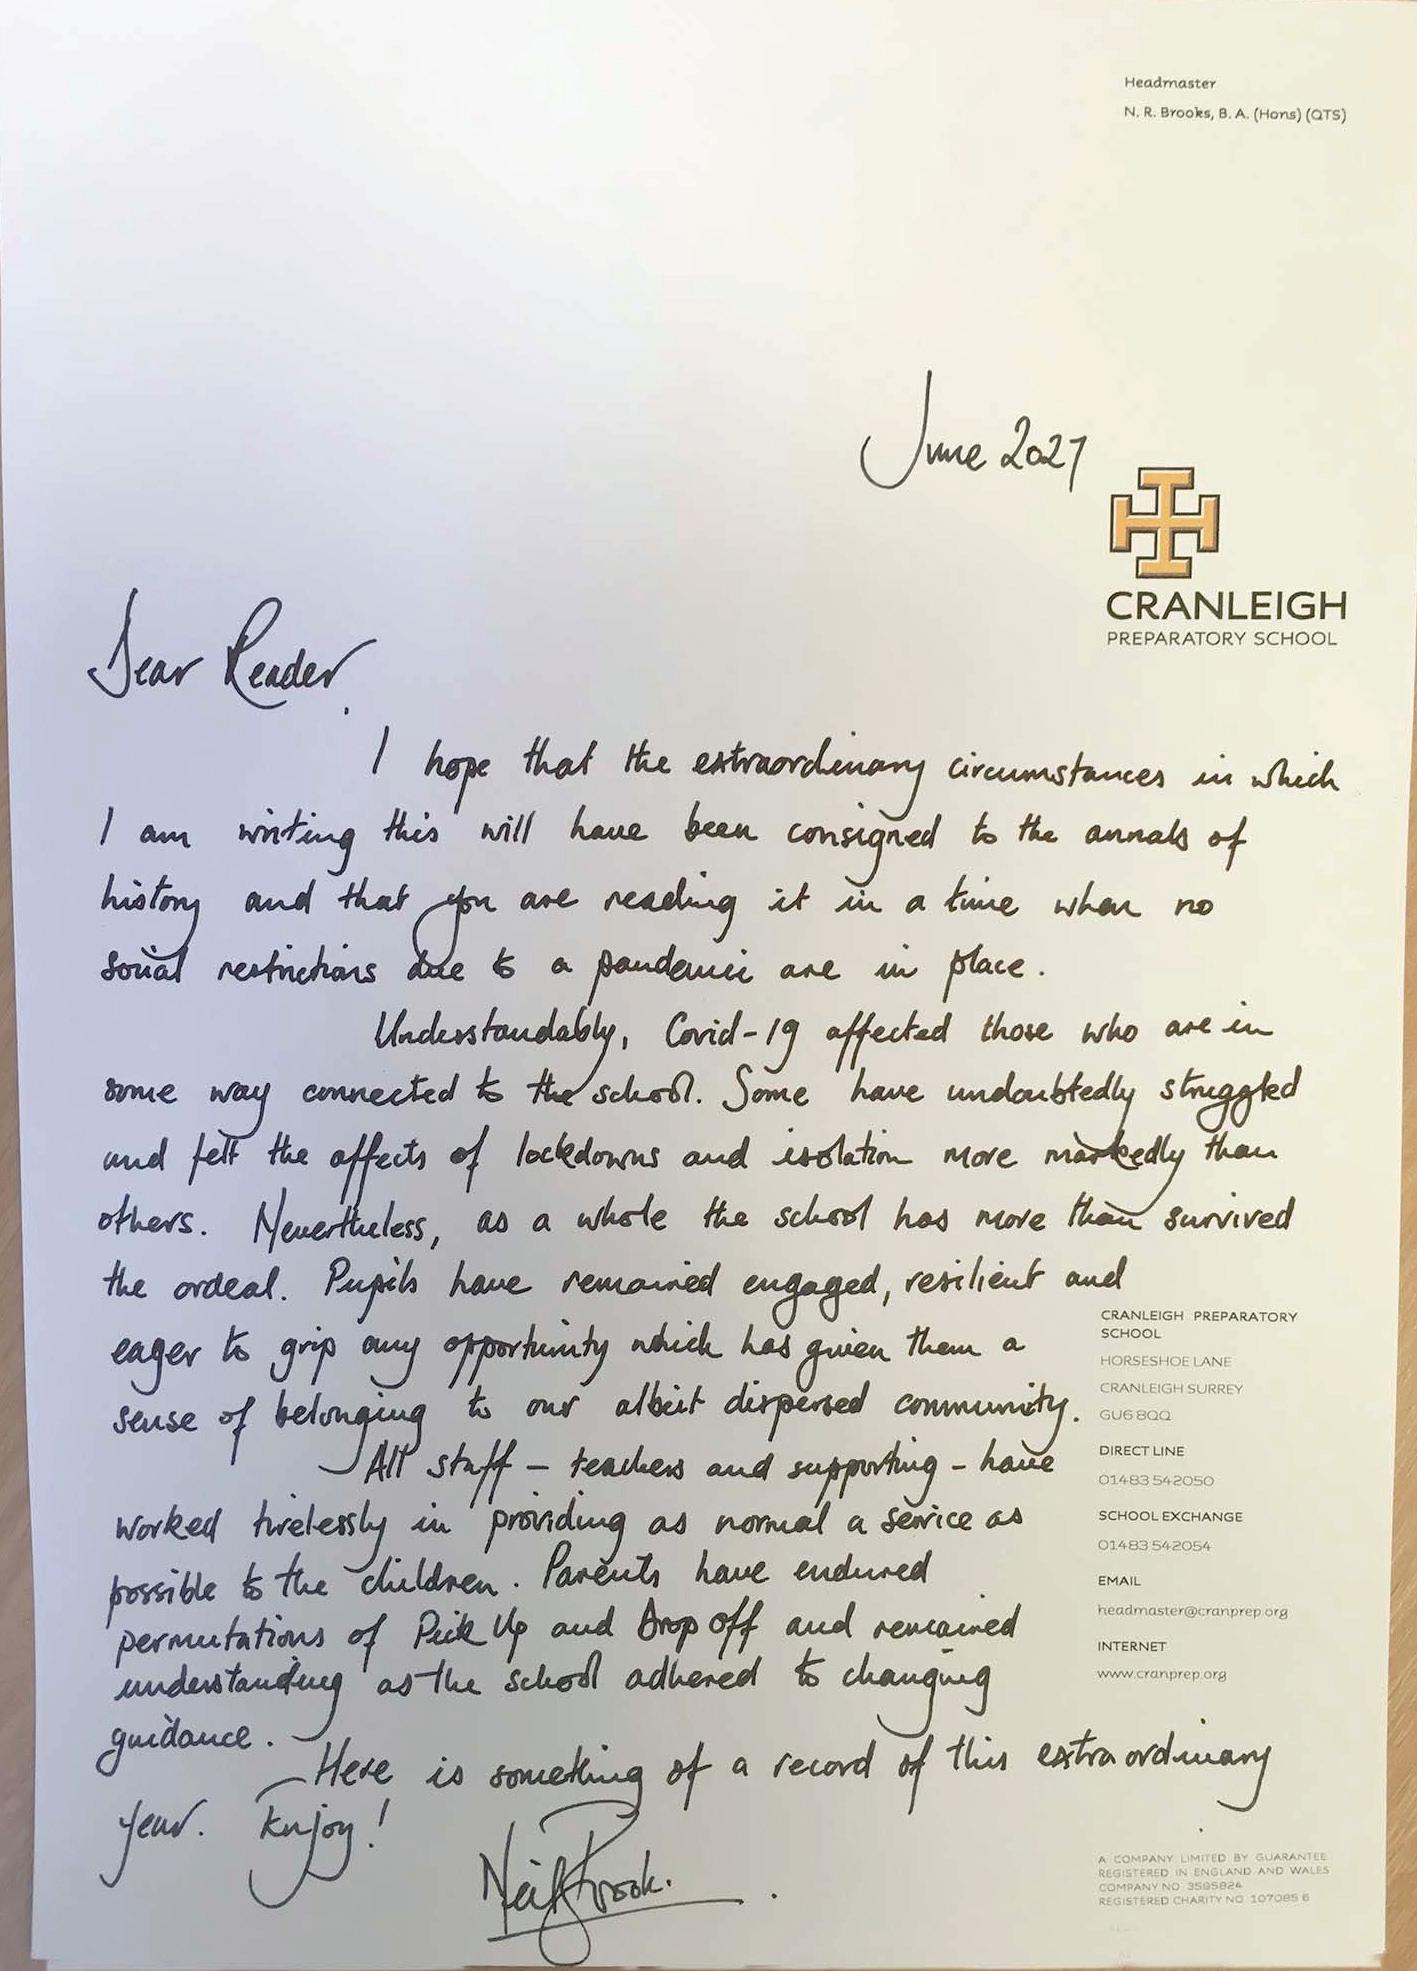 Headmaster
N. R. Brooks, B. A. (Hons) (QTS)
June 2021
CRANLEIGH
PREPARATORY SCHOOL
Dear Reader,
I hope that the extraordinary circumstances in which
I am writing this will have been consigned to the annals of
history and that you are reading it in a time when no
social restrictions due to a pandemic are in place.
Understandably, Covid-19 affected those who are in
some way connected to the school. Some have undoubtedly struggled
and felt the affects of lockdowns and isolation more markedly than
others. Nevertheless, as a whole the school has more than survived
the ordeal. Pupils have remained engaged, resilient and
eager to grip any opportunity which has given them a
sense of belonging to our albeit dispersed community.
All staff – teachers and supporting – have
worked tirelessly in providing as normal a service as
possible to the children. Parents have endured
permutations of Pick Up and Drop off and remained
understanding as the school adhered to changing
guidance.
Here is something of a record of this extraordinary
year. Enjoy!
Neil Brooks.
CRANLEIGH PREPARATORY
SCHOOL
HORSESHOE LANE
CRANLEIGH SURREY
GU6 8QQ
DIRECT LINE
01483 542050
SCHOOL EXCHANGE
01483 542054
EMAIL
headmaster@cranprep.org
INTERNET
www.cranprep.org
A COMPANY LIMITED BY GUARANTEE
REGISTERED IN ENGLAND AND WALES
COMPANY NO 3595824
REGISTERED CHARITY NO 107085 6